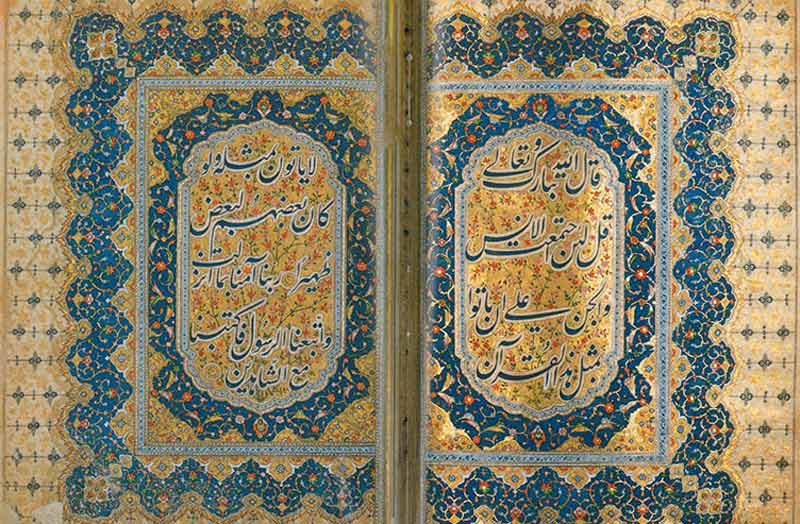 قال الله تبارک و تعالی
قل لئن اجتمعت الانس
و الجن علی ان یاتوا
بمثل هذا القرآن
لا یاتون بمثله و لو
کان بعضهم لبعض
ظهیرا ربنا آمنا بما انزلت
و اتبعنا الرسول فاکتبنا
مع الشاهدین